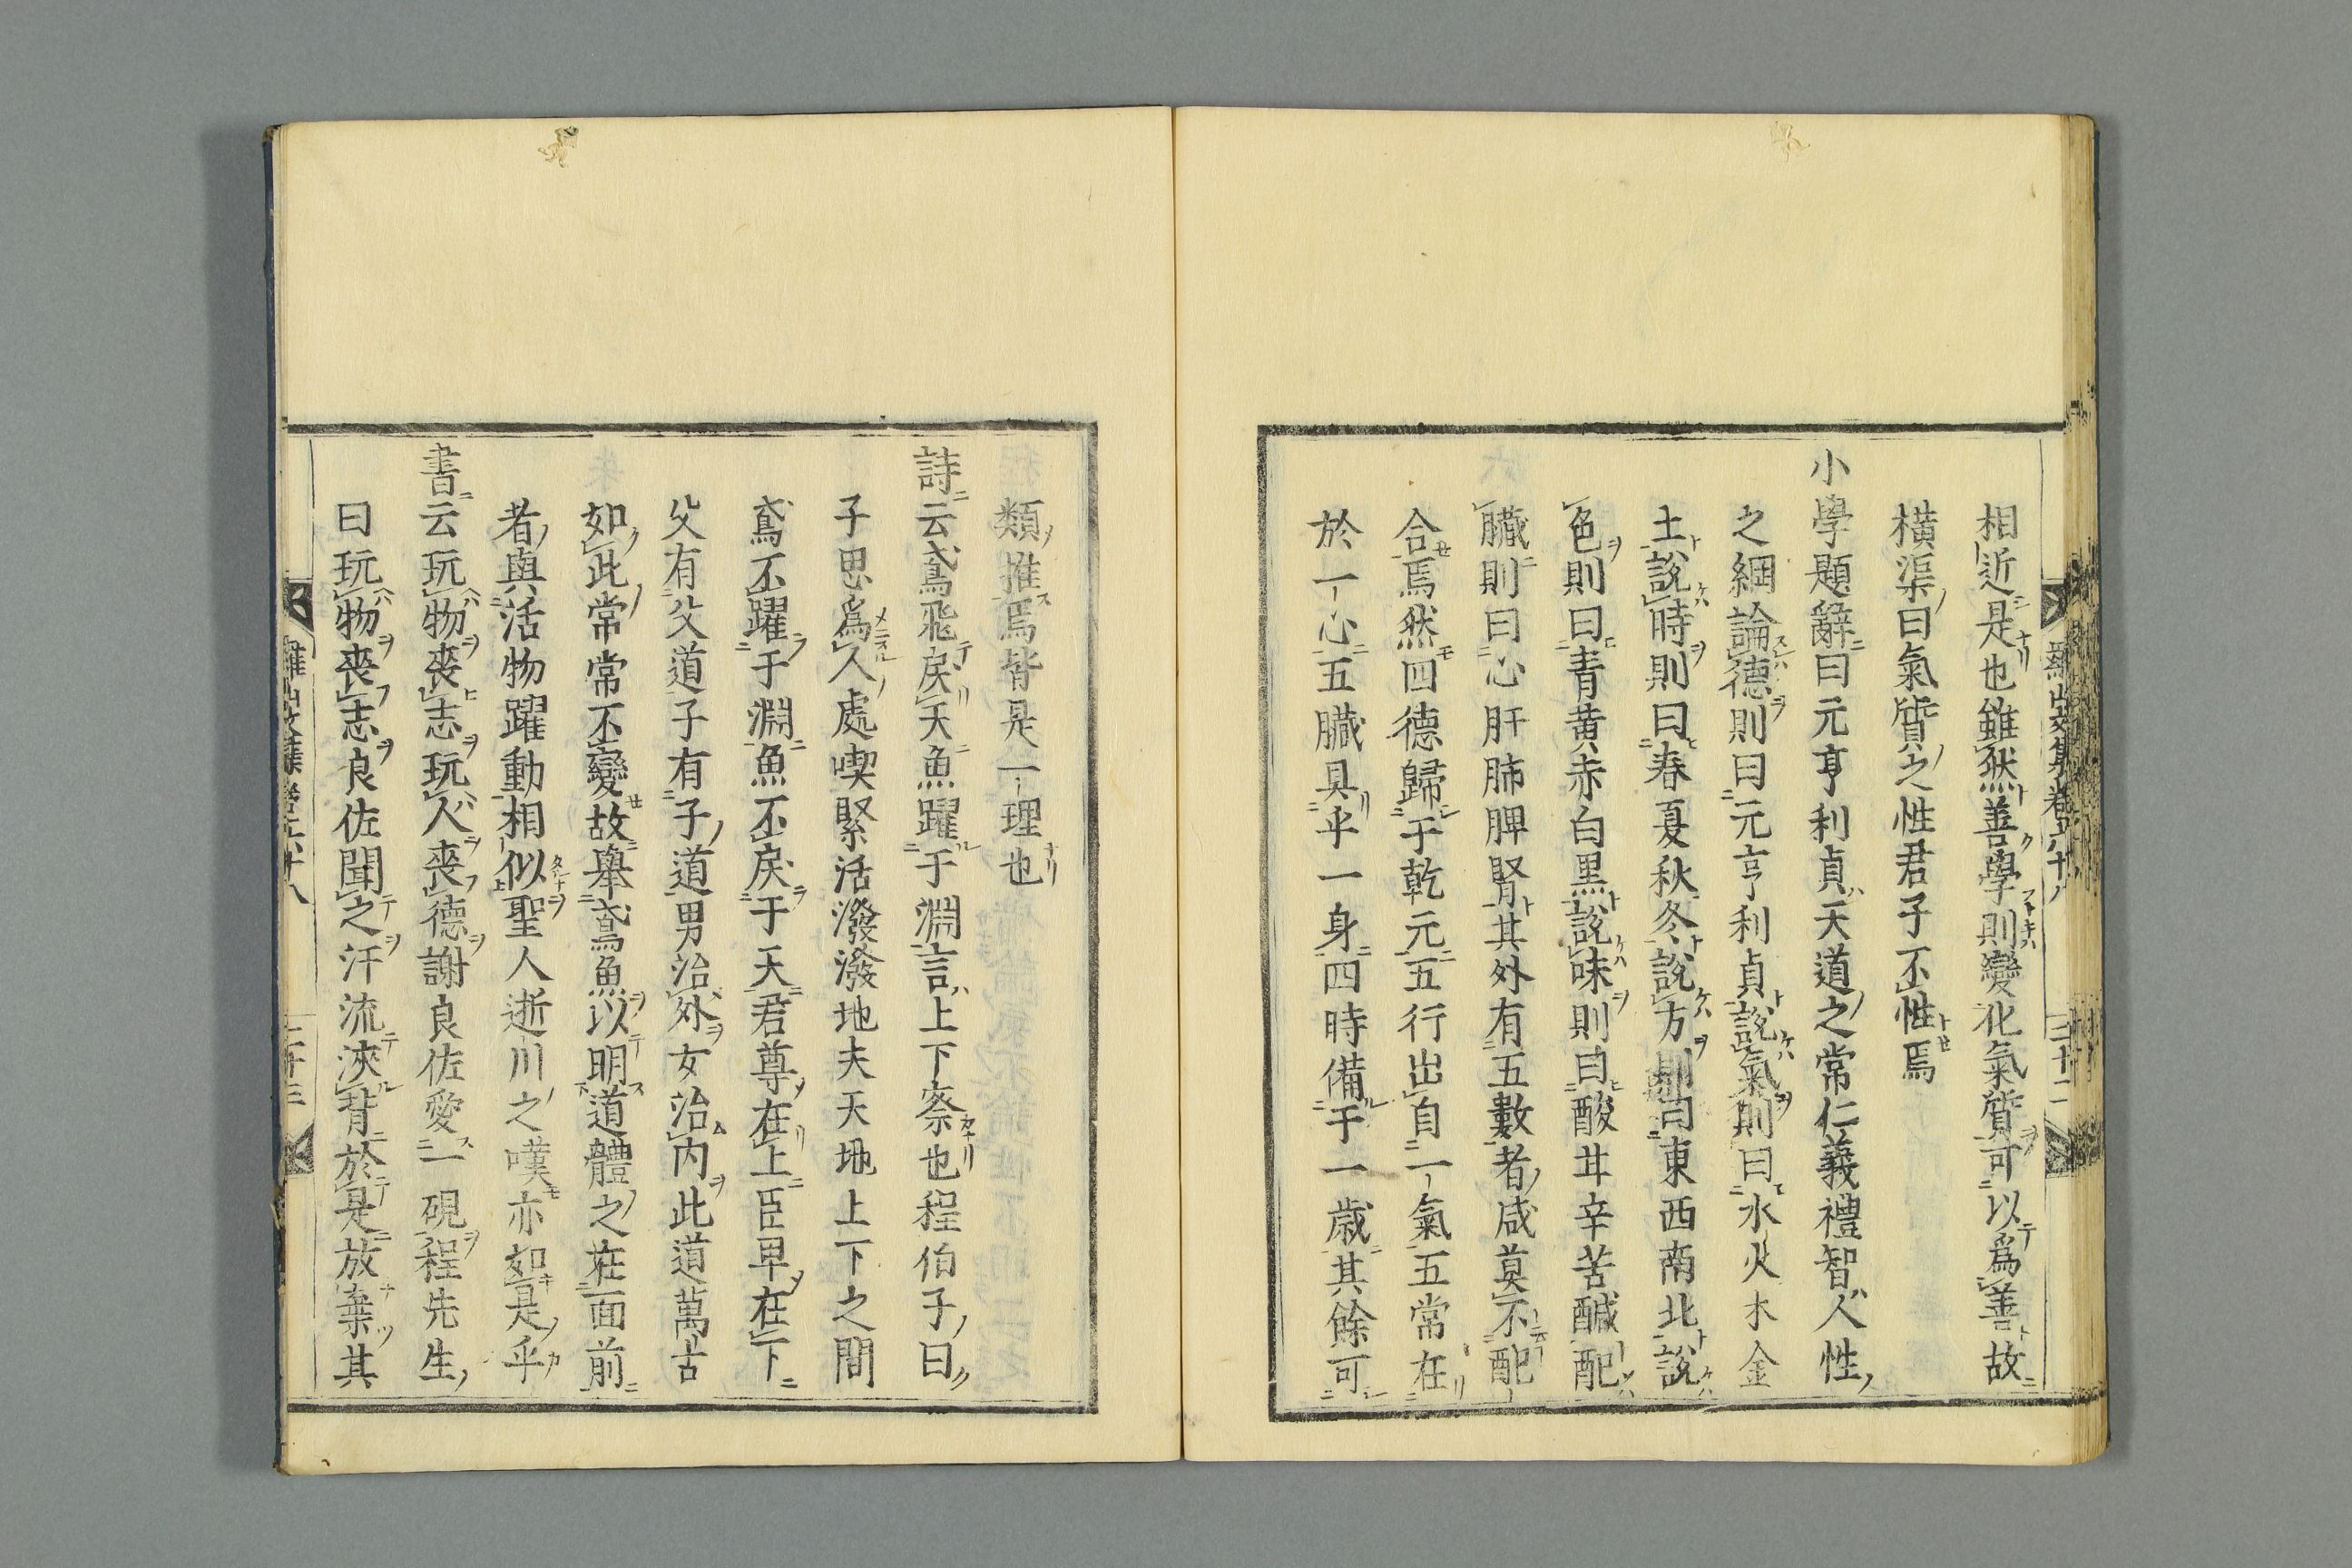 相近是也雖然善學則變化氣質可以爲善故
橫渠曰氣質之性君子不性焉
小學題辭曰元亨利貞天道之常仁義禮智人性
之綱論德則曰元亨利貞說氣則曰水火木金
土說時則曰春夏秋冬說方則曰東西南北說
色則曰青黃赤白黑說味則曰酸甘辛苦醎配
臟則曰心肝肺脾腎其外有五數者咸莫不配
合焉然四德歸于乾元五行出自一氣五常在
於一心五臟具乎一身四時備于一歲其餘可
類推焉皆是一理也
詩云鳶飛戾天魚躍于淵言上下察也程伯子曰
子思爲人處喫緊活潑潑地夫天地上下之間
鳶不躍于淵魚不戾于天君尊在上臣卑在下
父有父道子有子道男治外女治内此道萬古
如此常常不變故舉鳶魚以明道體之在面前
者與活物躍動相似聖人逝川之嘆亦如是乎
書云玩物喪志玩人喪德謝良佐愛一硯程先生
曰玩物喪志良佐聞之汗流浹背於是放棄其